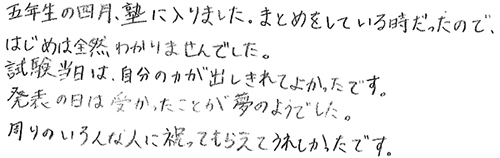 五年生の四月、塾に入りました。まとめをしている時だったので、
はじめは全然わかりませんでした。
試験当日は、自分の力が出しきれてよかったです。
発表の日は受かったことが夢のようでした。
周りのいろんな人に祝ってもらえてうれしかったです。